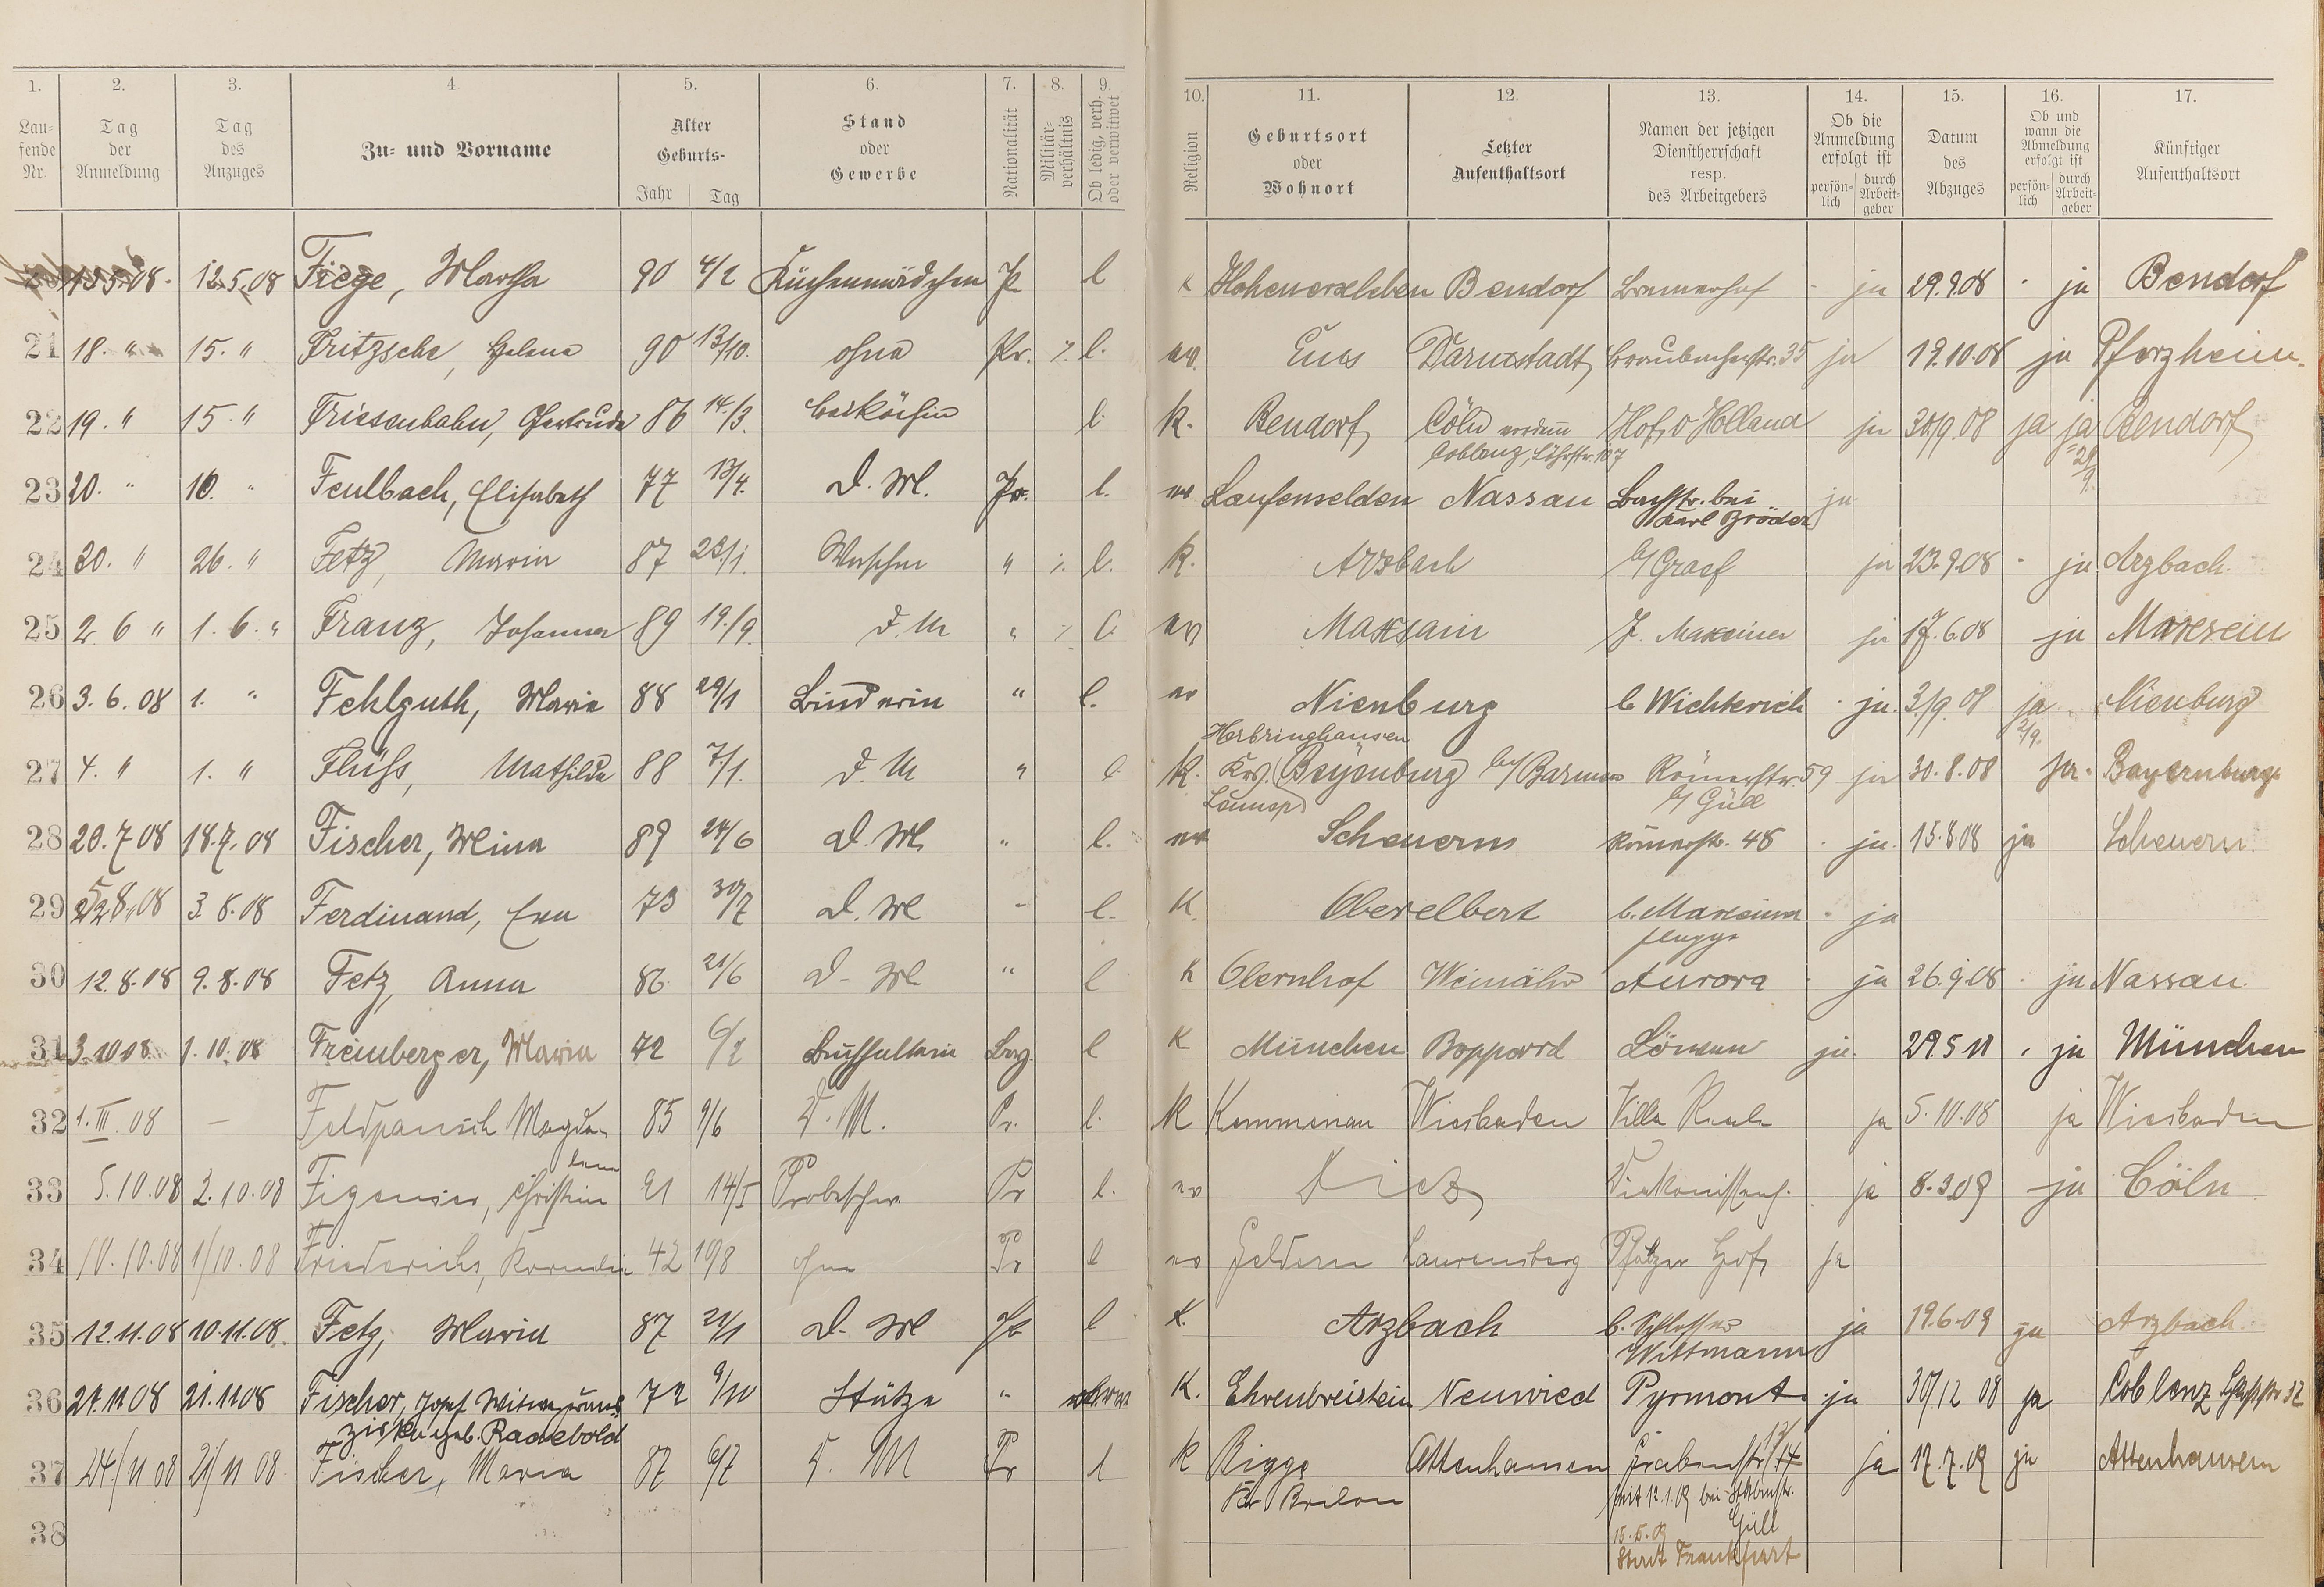 1. 2. 3. 4. 5. 6. 7. 8. 9. 10. 11. 12. 13. 14. 15. 16. 17.
Laufende Nr. Tag der Anmeldung Tag des Anzuges Zu- und Vorname Alter Geburts- Jahr Tag Stand oder Gewerbe Nationalität Militärverhältnis Ob ledig, verh. oder verwitwet Religion Geburtsort oder Wohnort Letzter Aufenthaltsort Namen der jetzigen Dienstherrschaft resp. des Arbeitgebers Ob die Anmeldung erfolgt ist persönlich durch Arbeitgeber Datum des Abzuges Ob und wann die Abmeldung erfolgt ist persönlich durch Arbeitgeber Künftiger Aufenthaltsort
13.5.08. 12.5.08 Fiege, Martha 90 4/2 Küchenmädchen Pr l Hohenerxleben Bendorf ja 29.9.08 ja Bendorf
21 18. " 15. " Fritzsche, Helene 90 13/10. ohne Pr. l. ev. Ems Darmstadt Braubacherstr. 35 ja 19.10.08 ja Pforzheim.
22 19. " 15 " Friesenhahn, Gertrude 86 14./3. l. K. Bendorf Cöln Hof v Holland ja 30/9.08 ja ja Bendorf
Coblenz, Löhrstr. 107 29/9.
23 20. " 10. " Feulbach, Elisabeth 77 13/4. D. M. Pr. l. ev Laufenselden Nassau Bachstr. bei ja
Karl Bröder
24 30. " 26. " Fetz, Maria 87 23/1. " l. K. Arzbach b/ Graef ja 23.9.08 ja Arzbach.
25 2. 6 " 1. 6. " Franz, Johanna 89 19./9. D. M " l ev Maxsain J. Maxeiner ja 17.6.08 ja Maxsein
26 3. 6. 08 1. " Fehlguth, Marie 88 29/1 Binderin " l. ev Nienburg b Wichterich ja. 3/9 08 ja Nienburg
2/9.
Herbringhausen
27 4. " 1. " Flüss, Mathilde 88 7/1. D. M " l K. Krs. Beyenburg b/ Barmen Römerstr. 59 ja 30.8.08 ja. Bayernburg.
Lennep b/ Güll
28 20.7 08 18.7.08 Fischer, Mina 89 24/6 D. M. " l. ev Scheuerns Römerstr. 48 ja. 15.8.08 ja Scheuern
29 8.08 3.8.08 Ferdinand, Eva 73 30/7 D. M " l. K. Oberelbert b. Maxeiner ja
30 12.8.08 9.8.08 Fetz, Anna 86 21/6 D. M " l K Obernhof Weinähr Aurora ja 26.9.08 ja Nassau.
31 3.10 08 1.10.08 Freinberger, Maria 72 6/2 Bay. l K München Boppard Löwen ja. 29.5 11 ja München
32 1. III. 08 — Magda- 85 9/6 D. M. Pr. l. K Kemmenau Wiesbaden Villa ja 5.10.08 ja Wiesbaden
lena
33 5.10.08 2.10.08 Christine 91 14/5 Probeschw. Pr l. ev Diez Diakonissenh. ja 8.3.09 ja Cöln
34 10.10.08 1/10.08 Friederichs, 42 10/8 ohne Pr l ev Geldern Laurensberg Pfälzer Hof ja
35 12.11.08 10.11.08. Fetz, Maria 87 21/1 D. M Pr l K. Arzbach b. Schlosser ja 19.6.09 ja Arzbach
Wittmann
36 24.11 08 21.11 08 Fischer, Josef Witwe Fran- 72 9/10 Stütze " K. Ehrenbreistein Neuwied Pyrmont ja 30/12 08 ja Coblenz
ziska geb. Radebold
37 24./11 08 21/11 08 Fischer, Maria 87 6/7 D. M Pr l K Rigge Attenhausen Grabenstr. ja 17.7.09 ja Attenhausen
Kr Brilon seit 12.1.09 bei
Güll
38 15.5.09
Stadt Frankfurt